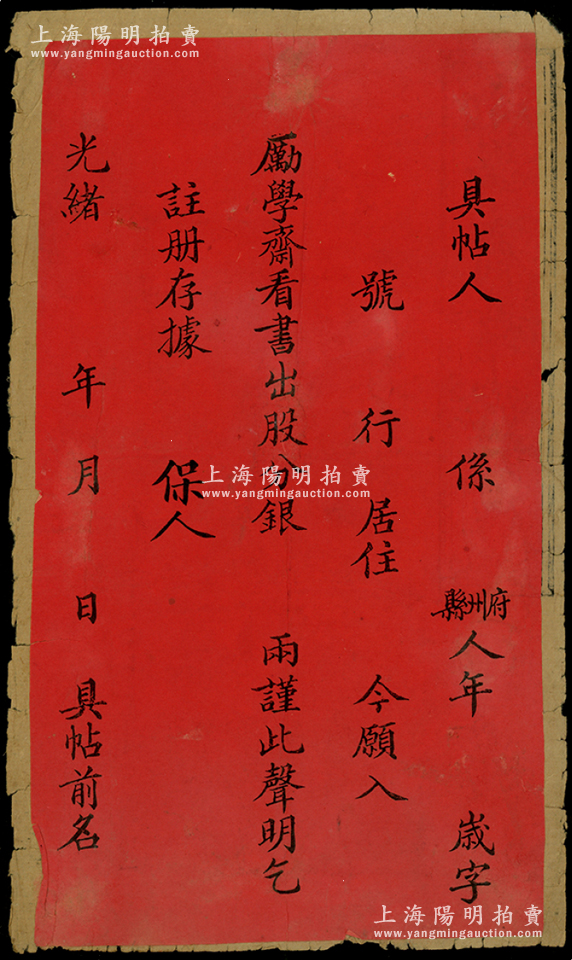 上海陽明拍賣
www.yangmingauction.com
具帖人 係 府州縣人年 歲字
號 行 居住 今願入
勵學齋看書出股分銀 兩謹此聲明乞
註册存據 保人
光緒 年 月 日 具帖前名
上海陽明拍賣
yangmingauction.com
上海陽明拍賣
www.yangmingauction.com